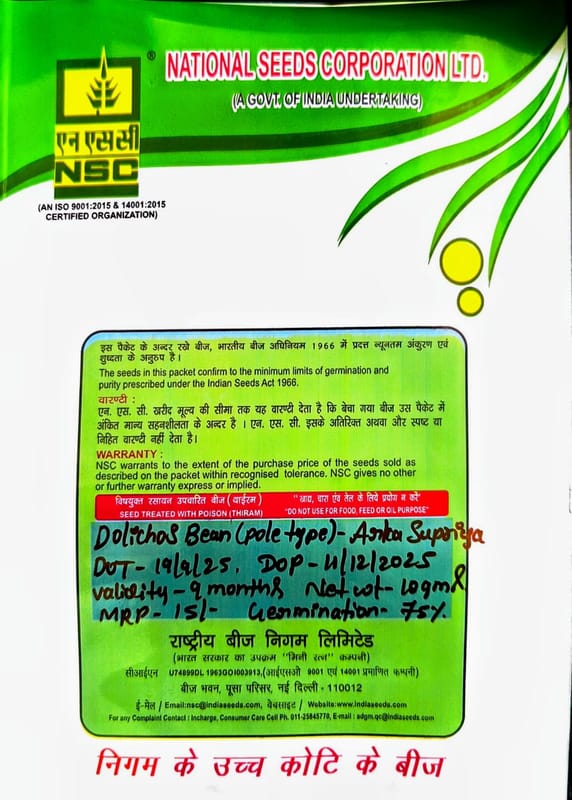 ® NATIONAL SEEDS CORPORATION LTD.
(A GOVT. OF INDIA UNDERTAKING)
एन एस सी
NSC
(AN ISO 9001:2015 & 14001:2015
CERTIFIED ORGANIZATION)
इस पैकेट के अन्दर रखे बीज, भारतीय बीज अधिनियम 1966 में प्रदत्त न्यूनतम अंकुरण एवं
शुध्दता के अनुरुप है।
The seeds in this packet confirm to the minimum limits of germination and
purity prescribed under the Indian Seeds Act 1966.
वारण्टी :
एन. एस. सी. खरीद मूल्य की सीमा तक यह वारण्टी देता है कि बेचा गया बीज उस पैकेट में
अंकित मान्य सहनशीलता के अन्दर है । एन. एस. सी. इसके अतिरिक्त अथवा और स्पष्ट या
निहित वारण्टी नहीं देता है।
WARRANTY :
NSC warrants to the extent of the purchase price of the seeds sold as
described on the packet within recognised tolerance. NSC gives no other
or further warranty express or implied.
विषयुक्त रसायन उपचारित बीज (थाईरम) "खाद्य, चारा एंव तेल के लिये प्रयोग न करें"
SEED TREATED WITH POISON (THIRAM) "DO NOT USE FOR FOOD, FEED OR OIL PURPOSE"
Dolichos Bean (pole type)- Arka Supriya
DOT - 19/9/25. DOP - 11/12/2025
validity - 9 months Net wt - 10gms
MRP - 15/- Germination - 75%.
राष्ट्रीय बीज निगम लिमिटेड
(भारत सरकार का उपक्रम "मिनी रत्न" कम्पनी)
सीआईएन U74899DL1963GOI003913,(आईएसओ 9001 एवं 14001 प्रमाणित कम्पनी)
बीज भवन, पूसा परिसर, नई दिल्ली - 110012
ई-मेल / Email:nsc@indiaseeds.com, वेबसाइट / Website:www.indiaseeds.com
For any Complaint Contact : Incharge, Consumer Care Cell Ph. 011-25845770, E-mail : adgm.qc@indiaseeds.com
निगम के उच्च कोटि के बीज